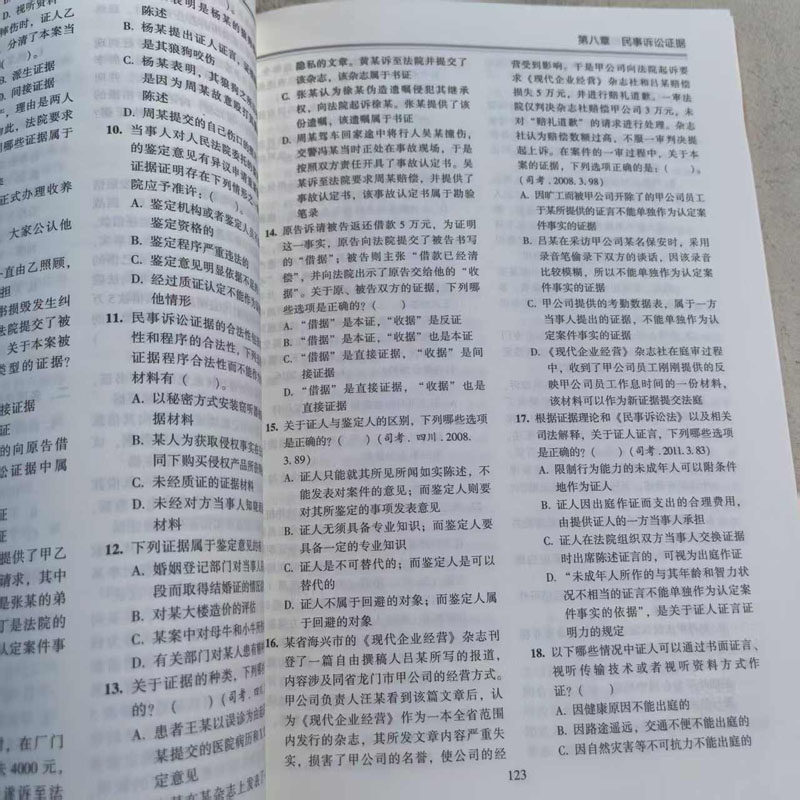 D. 视听资料
分清了本案当
B. 派生证据
D. 间接证据
，理由是两人
，法院要求
列哪些证据属于
正式办理收养
大家公认他
一直由乙照顾，
担
书损毁发生纠
法院提交了被
关于本案被
类型的证据？
接证据
证
的向原告借
讼证据中属
证
证
提供了甲乙
请求，其中
是张某的弟
丁是法院的
认定案件事
时，在厂门
失 4000 元，
遂诉至法
陈述
B. 杨某提出证人证言，
是其狼狗咬伤
C. 杨某表明，其狼狗之所
因为周某故意殴打
陈述
D. 周某提交的自己伤口的
10. 当事人对人民法院委托的
的鉴定意见有异议申请重新
证据证明存在下列情形之
院应予准许：（ ）。
A. 鉴定机构或者鉴定人员
鉴定资格的
B. 鉴定程序严重违法的
C. 鉴定意见明显依据不足
D. 经过质证认定不能作为
他情形
11. 民事诉讼证据的合法性
性和程序的合法性，下列
证据程序合法性而不能作为
材料有（ ）。
A. 以秘密方式安装窃听器
据材料
B. 某人为获取侵权事实
同下购买侵权产品所
C. 未经质证的证据材料
D. 未经对方当事人知晓
材料
12. 下列证据属于鉴定意见的
A. 婚姻登记部门对当事人
段而取得结婚证的情况
B. 对某大楼造价的评估
C. 某案中对母牛和小牛
D. 有关部门对某人患有精神
13. 关于证据的种类，下列哪
的？（ ）（司考．四川
A. 患者王某以误诊为由
某提交的医院病历和
定意见
某在某杂志上发表了
第八章 民事诉讼证据
隐私的文章。黄某诉至法院并提交了
该杂志，该杂志属于书证
C. 张某认为徐某伪造遗嘱侵犯其继承
权，向法院起诉徐某。张某提供了该
份遗嘱，该遗嘱属于书证
D. 周某驾车回家途中将行人吴某撞伤，
交警冯某当时正处在事故现场，于是
按照双方责任开具了事故认定书。吴
某诉至法院要求周某赔偿，并提供了
事故认定书，该事故认定书属于勘验
笔录
14. 原告诉请被告返还借款 5 万元，为证明
这一事实，原告向法院提交了被告书写
的“借据”；被告则主张“借款已经清
偿”，并向法院出示了原告交给他的“收
据”。关于原、被告双方的证据，下列哪
些选项是正确的？（ ）
A. “借据”是本证，“收据”是反证
B. “借据”是本证，“收据”也是本证
C. “借据”是直接证据，“收据”是间
接证据
D. “借据”是直接证据，“收据”也是
直接证据
15. 关于证人与鉴定人的区别，下列哪些选项
是正确的？（ ）（司考．四川．2008.
3. 89）
A. 证人只能就其所见所闻如实陈述，不
能发表对案件的意见；而鉴定人则要
对其所鉴定的事项发表意见
B. 证人无须具备专业知识；而鉴定人要
具备一定的专业知识
C. 证人是不可替代的；而鉴定人是可以
替代的
D. 证人不属于回避的对象；而鉴定人属
于回避的对象
16. 某省海兴市的《现代企业经营》杂志刊
登了一篇自由撰稿人吕某所写的报道，
内容涉及同省龙门市甲公司的经营方式。
甲公司负责人汪某看到该篇文章后，认
为《现代企业经营》作为一本全省范围
内发行的杂志，其所发文章内容严重失
实，损害了甲公司的名誉，使公司的经
营受到影响。于是甲公司向法院起诉要
求《现代企业经营》杂志社和吕某赔偿
损失 5 万元，并进行赔礼道歉。一审法
院仅判决杂志社赔偿甲公司 3 万元，未
对“赔礼道歉”的请求进行处理。杂志
社认为赔偿数额过高，不服一审判决提
起上诉。在案件的一审过程中，关于本
案的证据，下列选项正确的是：（ ）。
（司考．2008. 3. 98）
A. 因旷工而被甲公司开除了的甲公司员工
于某所提供的证言不能单独作为认定案
件事实的证据
B. 吕某在采访甲公司某名保安时，采用
录音笔偷录下双方的谈话，因该录音
比较模糊，所以不能单独作为认定案
件事实的证据
C. 甲公司提供的考勤数据表，属于一方
当事人提出的证据，不能单独作为认
定案件事实的证据
D. 《现代企业经营》杂志社在庭审过程
中，收到了甲公司员工刚刚提供的反
映甲公司员工作息时间的一份材料，
该材料可以作为新证据提交法庭
17. 根据证据理论和《民事诉讼法》以及相关
司法解释，关于证人证言，下列哪些选项
是正确的？（ ）（司考．2011. 3. 83）
A. 限制行为能力的未成年人可以附条件
地作为证人
B. 证人因出庭作证而支出的合理费用，
由提供证人的一方当事人承担
C. 证人在法院组织双方当事人交换证据
时出席陈述证言的，可视为出庭作证
D. “未成年人所作的与其年龄和智力状
况不相当的证言不能单独作为认定案
件事实的依据”，是关于证人证言证
明力的规定
18. 以下哪些情况中证人可以通过书面证言、
视听传输技术或者视听资料方式作
证？（ ）
A. 因健康原因不能出庭的
B. 因路途遥远，交通不便不能出庭的
C. 因自然灾害等不可抗力不能出庭的
123